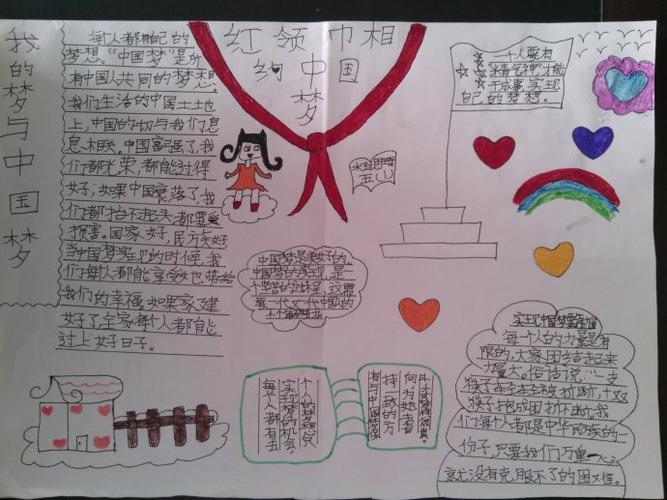 我的梦与中国梦
每人都有自己的
梦想。“中国梦”是所
有中国人共同的梦想。
我们生活的中国土地
上,中国的切与我们息
息相关。中国富强了,我
们都光荣,都能过得
好;如果中国衰落了,我
们都抬不起头,都要受
损害。国家好,民族好
当中国梦实现的时候,我
们每人都能享受也带给
我们的幸福,如果家建
好了全家每个人都能
过上好日子。
红领巾相
约中国
梦
一个人要有
才能
干成事,实现
自己的梦想。
五(1)
中国梦是美好的,
中国梦的实现,是
每个人都有去
实现梦的机会
个人的梦想只
有与中国梦保
持一致的方
向,为她去奋
实现中国梦要
每一个人的力量是有
限的,大家团结起来
力量大。俗话说“一支
筷子轻轻被折断,十双
筷子抱成团”折不断,我
们每个人都是中华民族的一
份子,只要我们万众一心
就没有克服不了的困难。